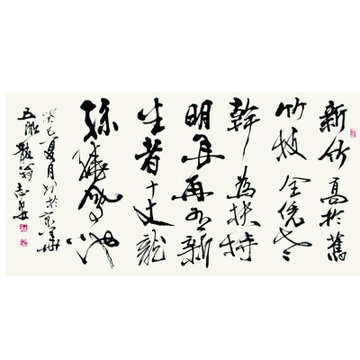 新竹高於舊
竹枝全憑老
幹為扶持
明年再有新
生者十丈龍
孫繞鳳池
癸巳夏月於京華
散翁志